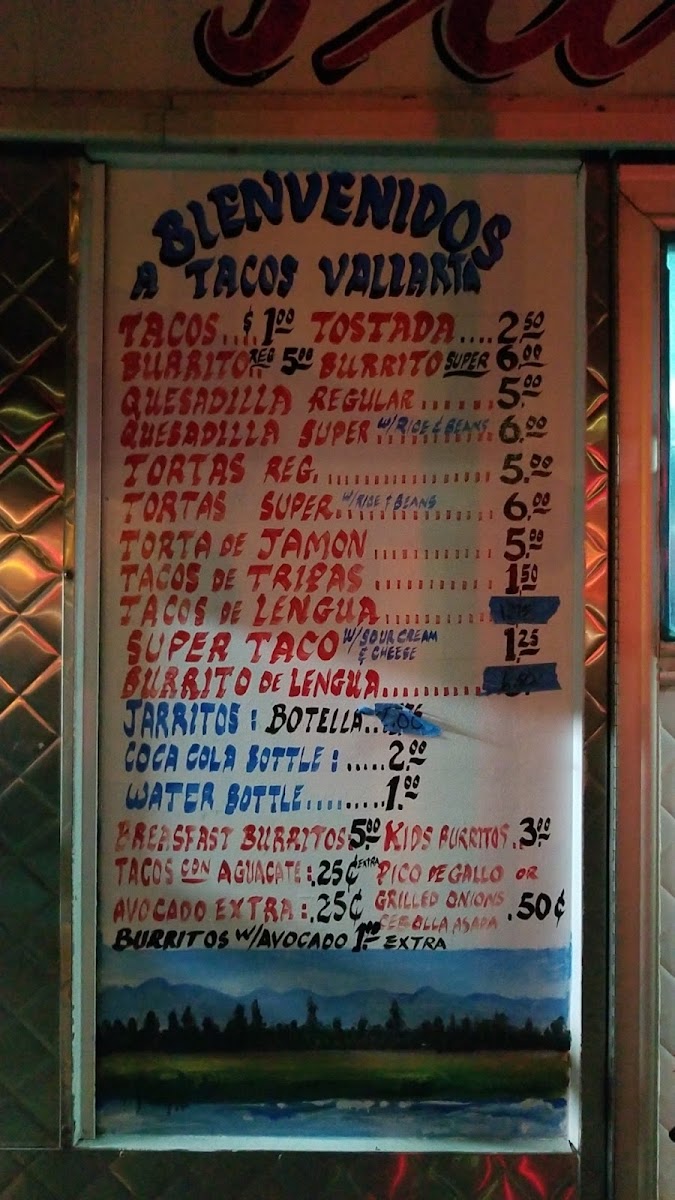 BIENVENIDOS
A TACOS VALLARTA
TACOS....$1.00 TOSTADA....2.50
BURRITO REG 5.00 BURRITO SUPER 6.00
QUESADILLA REGULAR.......5.00
QUESADILLA SUPER W/RICE & BEANS 6.00
TORTAS REG. .................5.00
TORTAS SUPER W/RICE & BEANS 6.00
TORTA DE JAMON............5.00
TACOS DE TRIPAS...........1.50
TACOS DE LENGUA..........
SUPER TACO W/SOUR CREAM & CHEESE 1.25
BURRITO DE LENGUA..........
JARRITOS: BOTELLA..
COCA COLA BOTTLE:.....2.00
WATER BOTTLE.........1.00
BREASFAST BURRITOS 5.00 KIDS BURRITOS.3.00
TACOS CON AGUACATE:.25¢ EXTRA PICO DE GALLO OR
AVOCADO EXTRA:.25¢ GRILLED ONIONS .50¢
CEBOLLA ASADA
BURRITOS W/AVOCADO 1.00 EXTRA